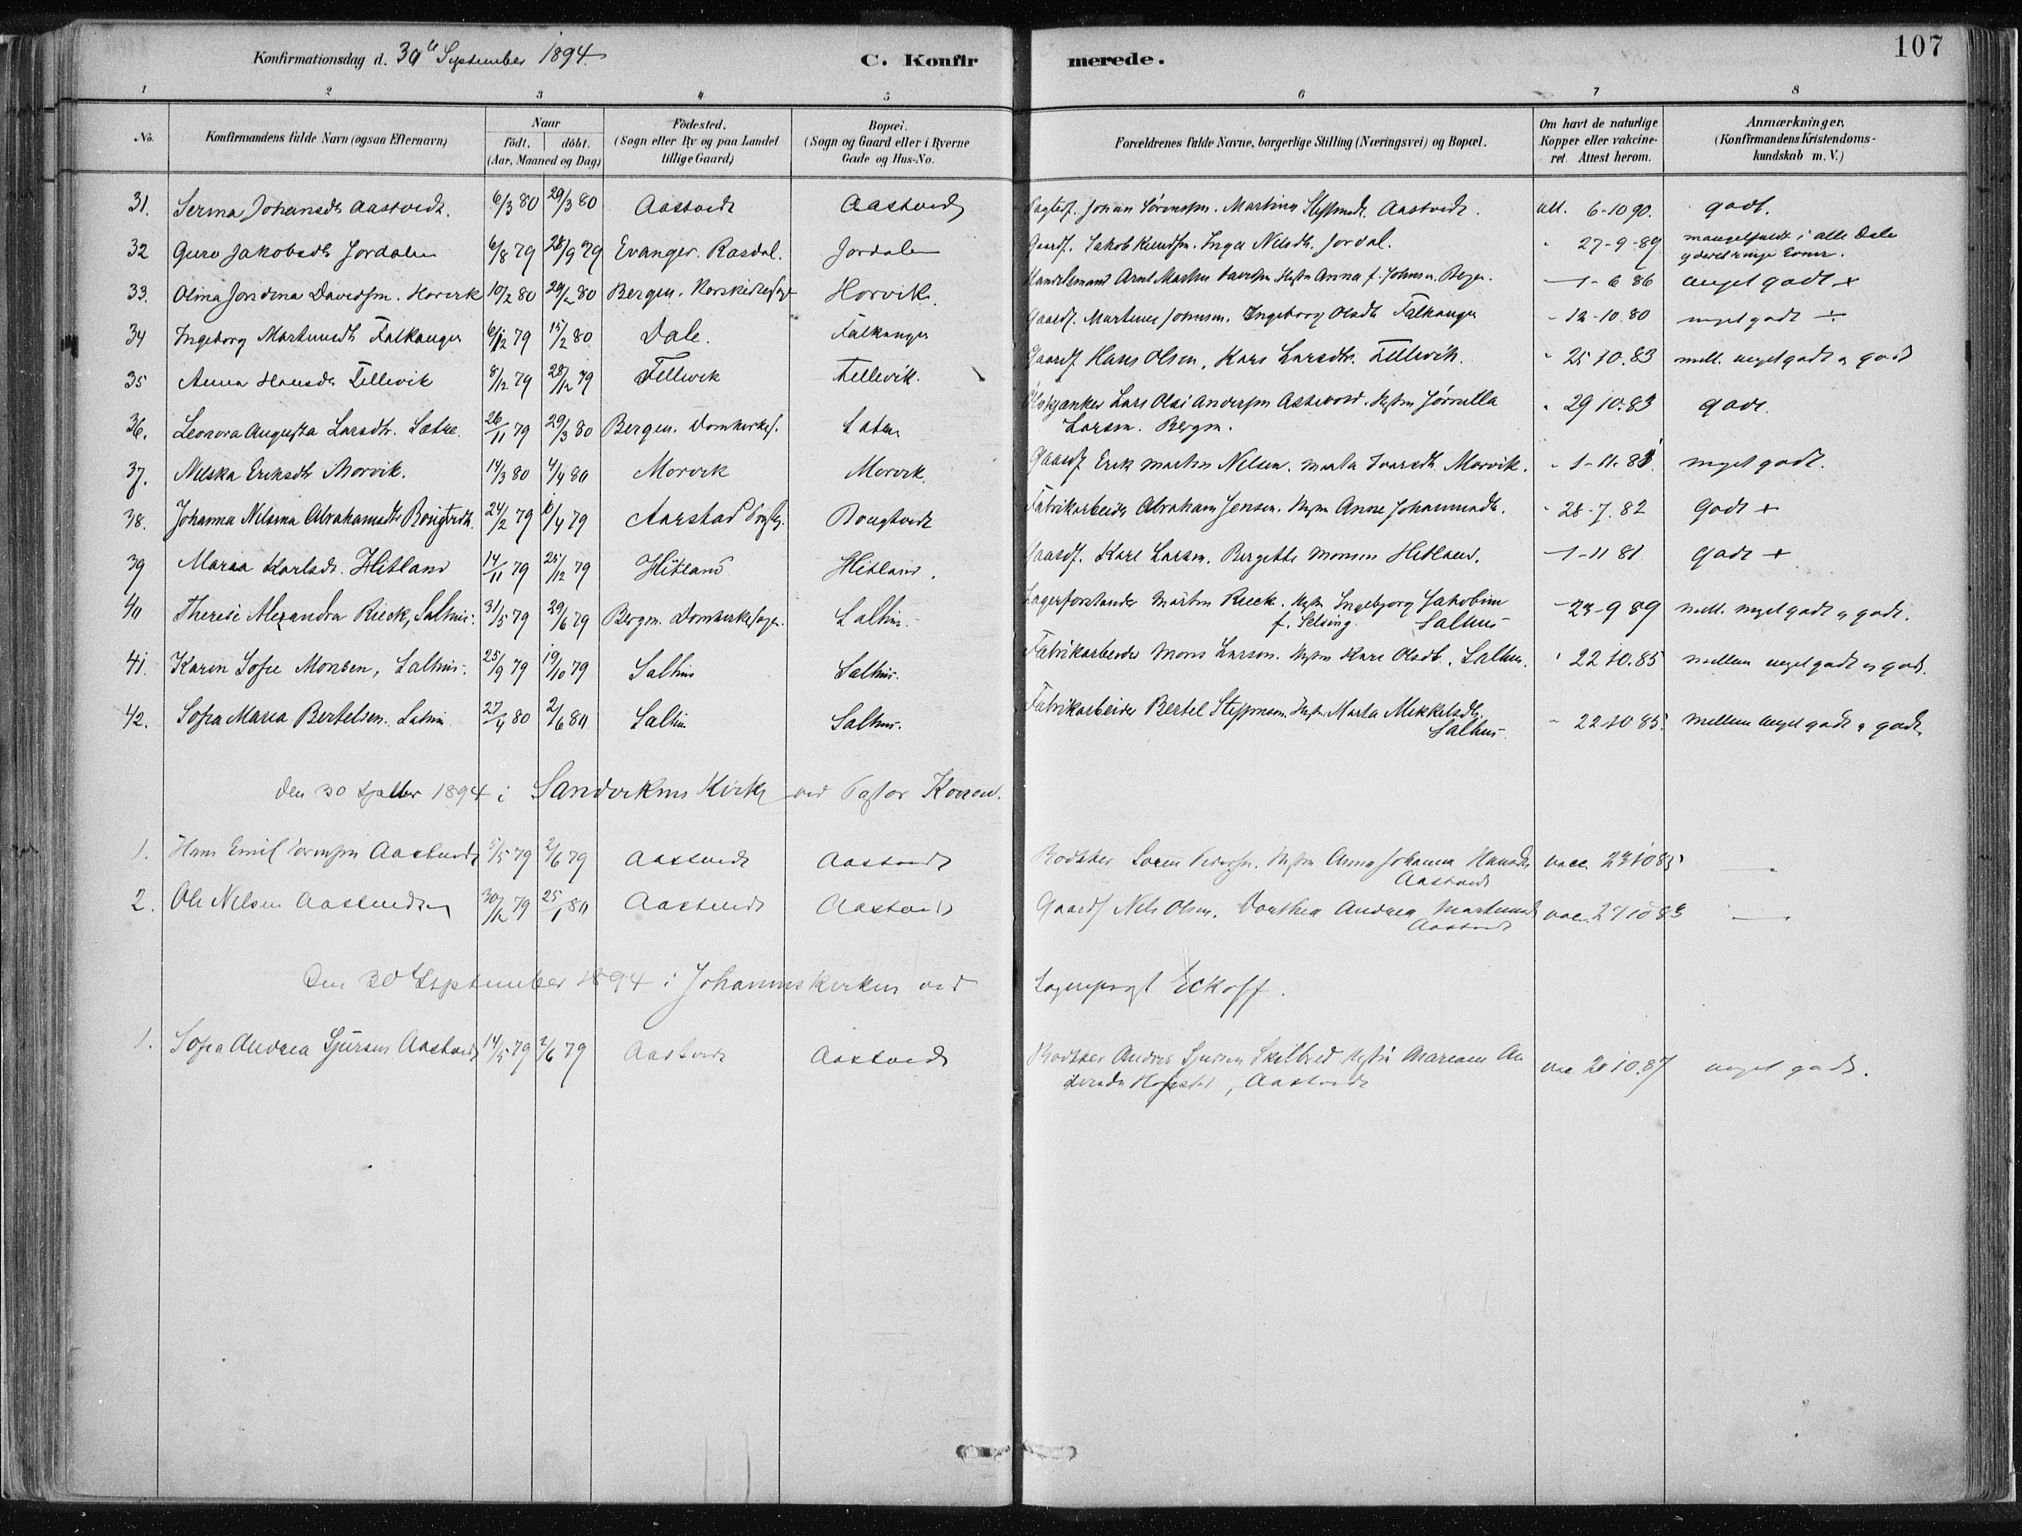 107
Konfirmationsdag d. 30te September 1894.
C. Konfirmerede.
1 2 3 4 5 6 7 8
No. Konfirmandens fulde Navn (ogsaa Efternavn) Naar födt. döbt. (Aar, Maaned og Dag) Födested. (Sogn eller By og paa Landet tillige Gaard) Bopæl. (Sogn og Gaard eller i Byerne Gade og Hus-No. Forældrenes fulde Navne, borgerlige Stilling (Næringsvei) og Bopæl. Om havt de naturlige Kopper eller vakcineret. Attest herom. Anmærkninger, (Konfirmandens Kristendomskundskab m. V.)
31. Serina Johansdtr Aastvedt. 6/3 80 29/3 80 Aastvedt Aastvedt Johan Sørensen. Martina Aastvedt. att. 6-10 90. godt.
32 Guro Jakobsdtr Jordalen 6/8 79 28/9 79 Evanger. Rasdal. Jordalen Gaardf. Jakob Knudsen. Inga Nilsdtr. Jordal. " 27-9-89 mangelfuldt i alle Dele yderst ringe Evner.
33. Olina Jordina Davidsen. Horvik 10/2 80 29/2 80 Bergen. Korskirkesogn Horvik. Handelsmand Arnt Martin Davidsen Hustru Anna f. Johnsen. Bergen. - 1-6 86 meget godt +
34 Ingeborg Martinusdtr Falkanger 6/12 79 15/2 80 Dale. Falkanger Gaardf. Martinus Johnsen. Ingeborg Olsdtr Falkanger - 12-10.80 meget godt
35 Anna Hansdtr Tellevik 8/12 79 28/12 79 Tellevik Tellevik. Gaardf Hans Olsen, Kari Larsdtr. Tellevik. " 25 10.83 mell. meget godt og godt
36. Leonora Augusta Larsdtr. Sætre. 26/11 79 29/3 80 Bergen. Domkirkes. Sætre Ølskjænker Lars Olai Andersen Hustru Larsen. Bergen. " 29 10.83 godt.
37. Nilska Eriksdtr Morvik. 14/3 80 4/4 80 Morvik Morvik. Gaardf Erik Martin Nilsen. Marta Ivarsdtr. Morvik. - 1-11.83 meget godt.
38. Johanna Nilsina Abrahamsdtr Bougtvedt. 24/2 79 /4 79 Aarstad Bougtvedt Fabrikarbeider Abraham Jensen. Hustru Anne Johannesdtr. " 28-7.82 Godt +
39 Maria Karlsdtr. Hitland 14/11 79 25/12 79 Hitland Hitland. Gaardf. Karl Larsen. Bergette Monsen Hitland. - 1-11 81 Godt +
40 Therese Alexandra Rieck, Salhus. 31/5 79 29/6 79 Bergen. Domkirkesogn. Salhus. Lagerforstander Martin Rieck. Hustru Ingebjorg Jakobine f. Selving. Salhus - 23-9 89 mell. meget godt og godt.
41. Karen Sofie Monsen, Salhus. 25/9 79 19/10 79 Salhus Salhus. Fabrikarbeider Mons Larsen. Hustru Kari Olsdtr. Salhus. " 22 10.85 mellem meget godt og godt.
42. Sofia Maria Bertelsen. Salhus 27/4 80 2/6 80 Salhus Salhus. Fabrikarbeider Bertel Steffensen. Hustru Marta Mikkelsdtr. Salhus - 22 10 85. mellem meget godt og godt.
den 30 Septbr 1894 i Sandvikens Kirke ved Pastor Konow.
1. Hans Emil Sørensen Aastvedt 5/5 79 2/6 79 Aastvedt Aastvedt Bødtker Søren Pedersen. Hustru Anna Johanna Hansdtr Aastvedt vacc. 23 10 85 —
2. Ole Nilsen Aastvedt 30/12 79 25/1 80 Aastvedt Aastvedt Gaardf Nils Olsen. Dorthea Andrea Martinusdtr Aastvedt vac. 27 10 83 —
Den 30te September 1894 i Johanneskirken ved Sognepræst Eckhoff.
1. Sofia Andrea Sjursen Aastvedt 14/5 79 2/6 79 Aastvedt Aastvedt Bødtker Anders Sjursen Skilbred Hustru Mariane Andersdtr Hopstad, Aastvedt vac 20 10.87 meget godt.